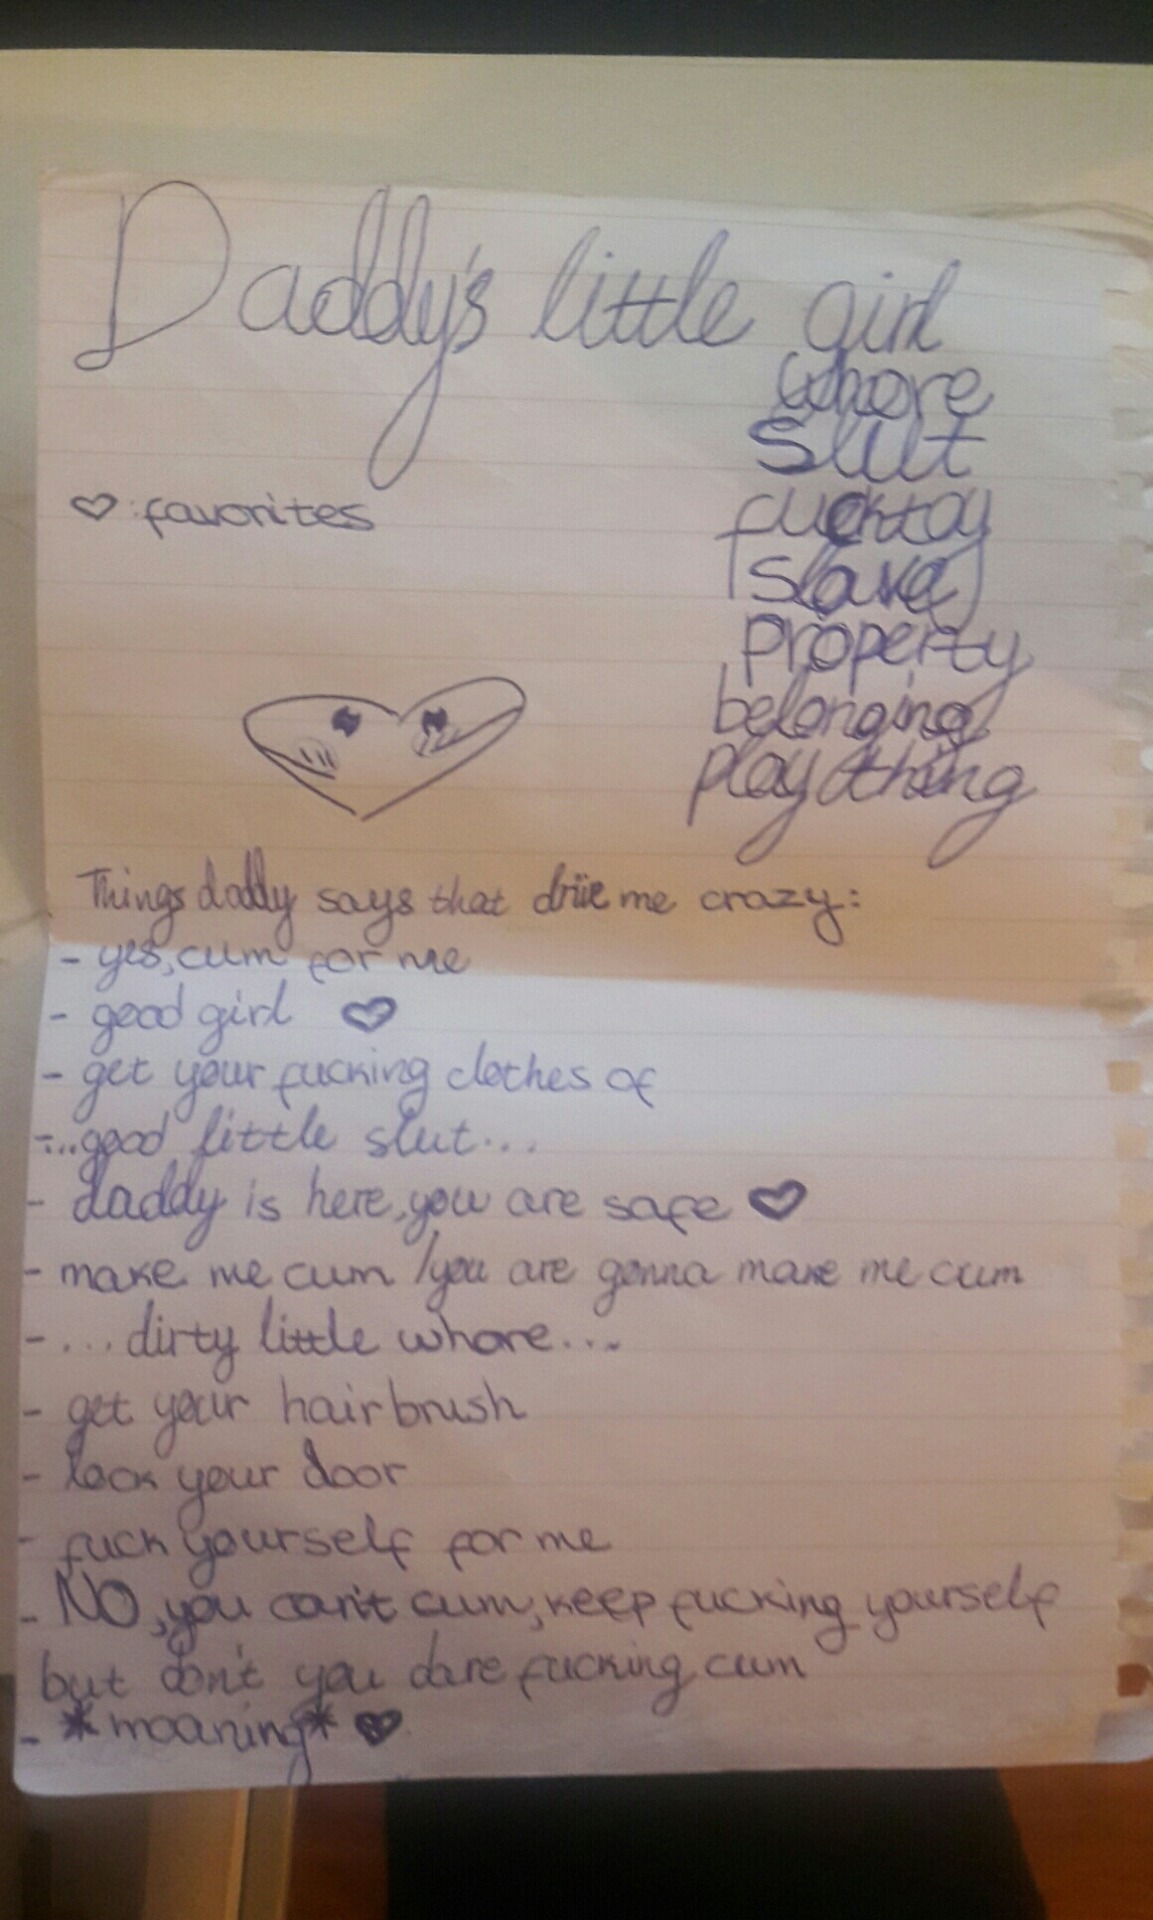 Daddy's little girl
whore
slut
♡: favorites
fucktoy
slave
property
belonging
plaything
Things daddy says that drive me crazy:
- yes, cum for me
- good girl ♡
- get your fucking clothes of
- ...good little slut...
- daddy is here, you are safe ♡
- make me cum / you are gonna make me cum
- ...dirty little whore...
- get your hairbrush
- lock your door
- fuck yourself for me
- NO, you can't cum, keep fucking yourself
but don't you dare fucking cum
- *moaning* ♡